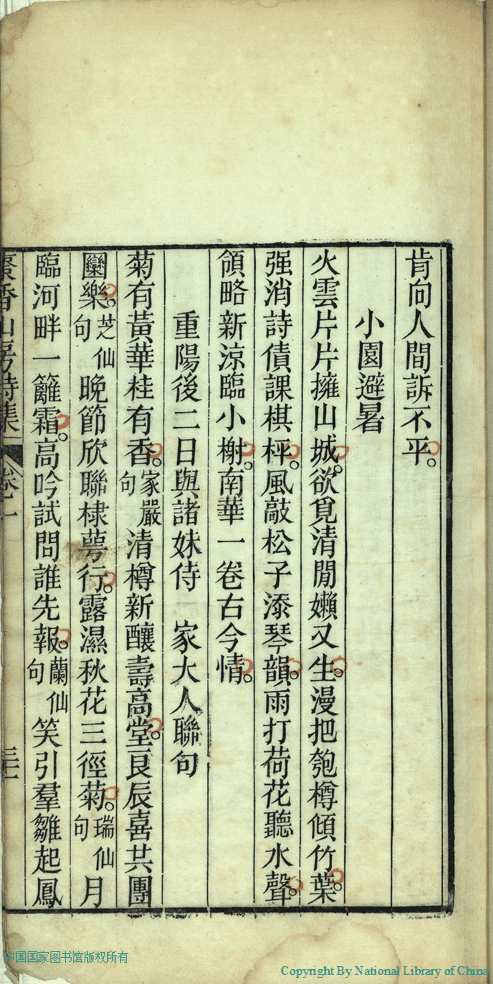 肯向人間訴不平。
小園避暑
火雲片片擁山城。欲覓清閒嬾又生。漫把匏樽傾竹葉。
强消詩債課棋枰。風敲松子添琴韻。雨打荷花聽水聲。
領略新涼臨小榭。南華一卷古今情。
重陽後二日與諸妹侍　家大人聯句
菊有黃華桂有香。家嚴句清樽新釀壽高堂。良辰喜共團
圞樂。芝仙句晚節欣聯棣萼行。露濕秋花三徑菊。瑞仙句月
臨河畔一籬霜。高吟試問誰先報。蘭仙句笑引羣雛起鳳
香山房詩集
中国国家图书馆版权所有
Copyright By National Library of China